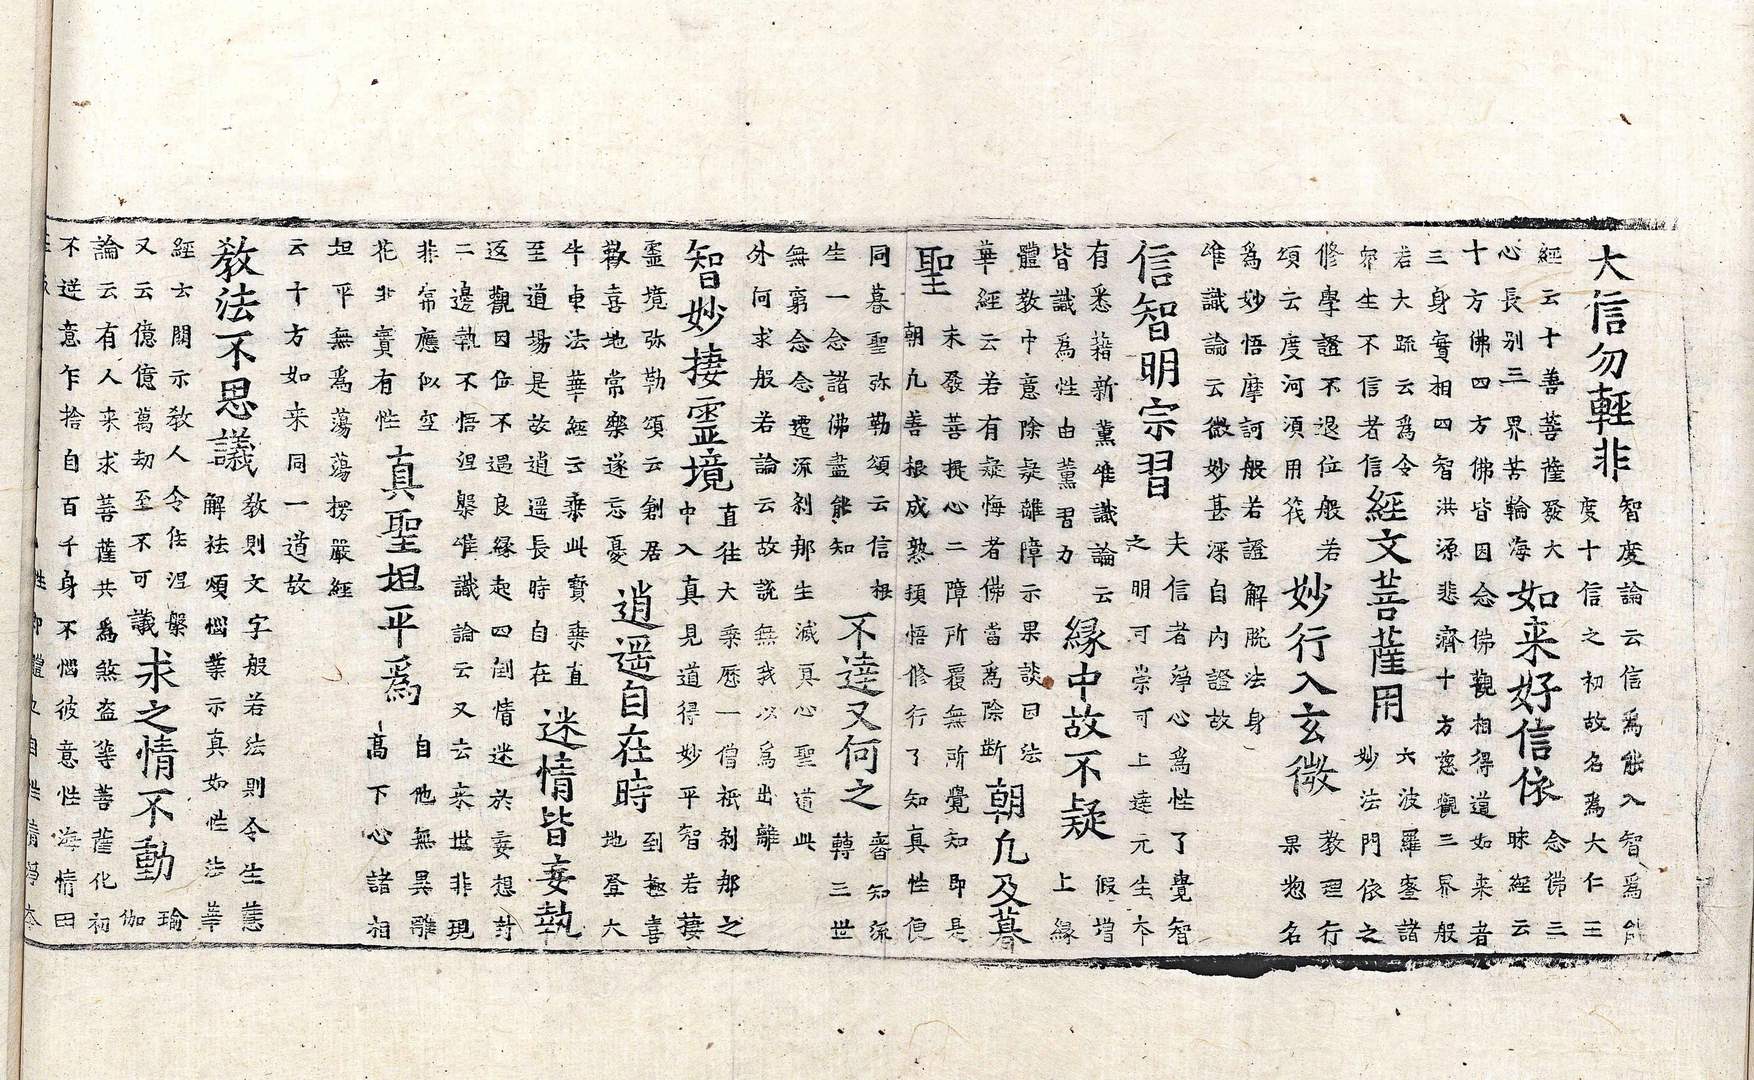 大信勿輕非
智度論云信爲能入智爲能
度十信之初故名爲大仁王
經云十善菩薩發大
心長别三界苦輪海
如来好信依
念佛三
昧經云
十方佛四方佛皆因念佛觀相得道如来者
三身實相四智洪源悲濟十方慈觀三界般
若大疏云爲令
衆生不信者信
經文菩薩用
六波羅蜜諸
妙法門依之
修學證不退位般若
頌云度河湏用筏
妙行入玄微
教理行
果惣名
爲妙悟摩訶般若證解脱法身
唯識論云微妙甚深自内證故
信智明宗習
夫信者淨心爲性了覺智
之明可崇可上達元生本
有悉藉新薰唯識論云
皆識爲性由薰習力
縁中故不疑
假增
上縁
體教中意除疑離障示果談因法
華經云若有疑悔者佛當爲除断
朝凡及暮
聖
未發菩提心二障所覆無所覺知即是
朝凡善根成熟頓悟修行了知真性便
同暮聖弥勒頌云信根
生一念諸佛盡能知
不達又何之
審知流
轉三世
無窮念念遷流刹那生滅真心聖道此
外何求般若論云故説無我以爲出離
智妙捿靈境
直往大乘歷一僧祇刹那之
中入真見道得妙平智若捿
靈境弥勒頌云創居
歡喜地常樂遂忘憂
逍遥自在時
到極喜
地登大
牛車法華經云乘此寳乘直
至道場是故逍遥長時自在
迷情皆妄執
返觀因位不遇良縁起四倒情迷於妄想封
二邊執不悟涅槃唯識論云又去来世非現
非常應似空
花非實有性
真聖坦平爲
自他無異離
高下心諸相
坦平無爲蕩蕩楞嚴經
云十方如来同一道故
教法不思議
教則文字般若法則令生慧
解祛煩惱業示真如性法華
經云開示教人令住涅槃
又云億億萬劫至不可議
求之情不動
瑜
伽
論云有人来求菩薩共爲煞盗等菩薩化初
不逆意乍捨自百千身不惱彼意性海情田